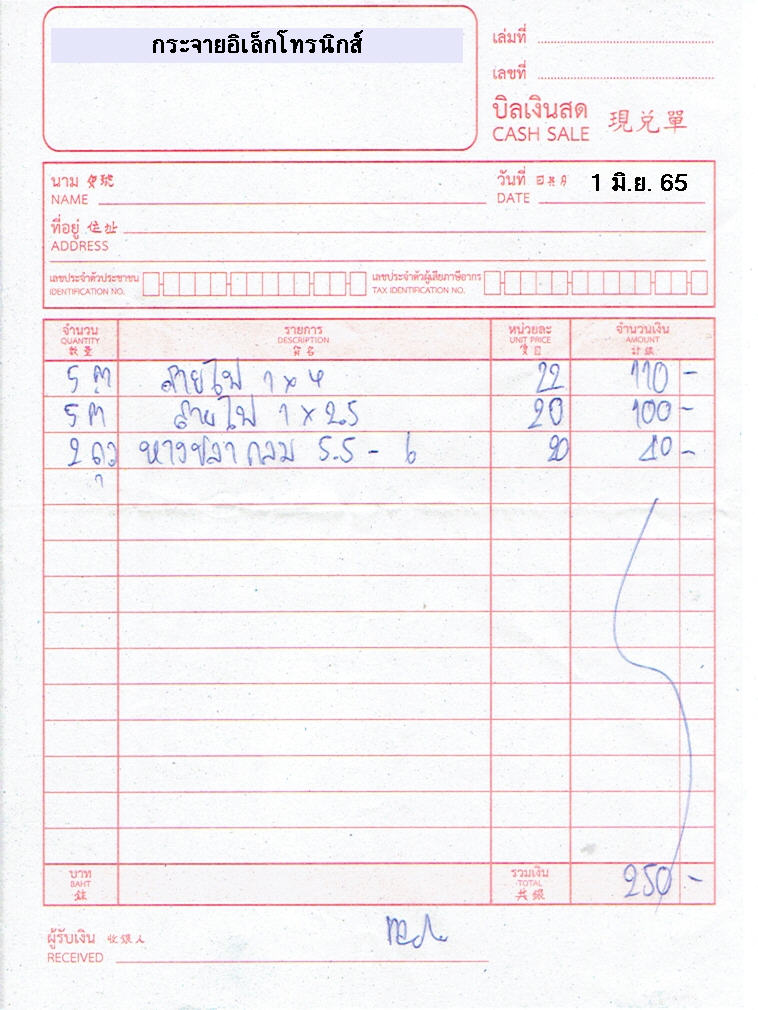 กระจายอิเล็กโทรนิกส์
เล่มที่
เลขที่
บิลเงินสด 現兌單
CASH SALE
นาม 宝號
NAME
วันที่ 日期 1 มิ.ย. 65
DATE
ที่อยู่ 住址
ADDRESS
เลขประจำตัวประชาชน
IDENTIFICATION NO.
เลขประจำตัวผู้เสียภาษีอากร
TAX IDENTIFICATION NO.
จำนวน รายการ หน่วยละ จำนวนเงิน
QUANTITY DESCRIPTION UNIT PRICE AMOUNT
數量 貨名
5 ม สายไฟ 1 x 4 22 110 -
5 ม สายไฟ 1 x 2.5 20 100 -
2 ถุง หางปลากลม 5.5 - 6 20 40 -
บาท รวมเงิน 250 -
BAHT TOTAL
銖 共銀
ผู้รับเงิน 收銀人
RECEIVED